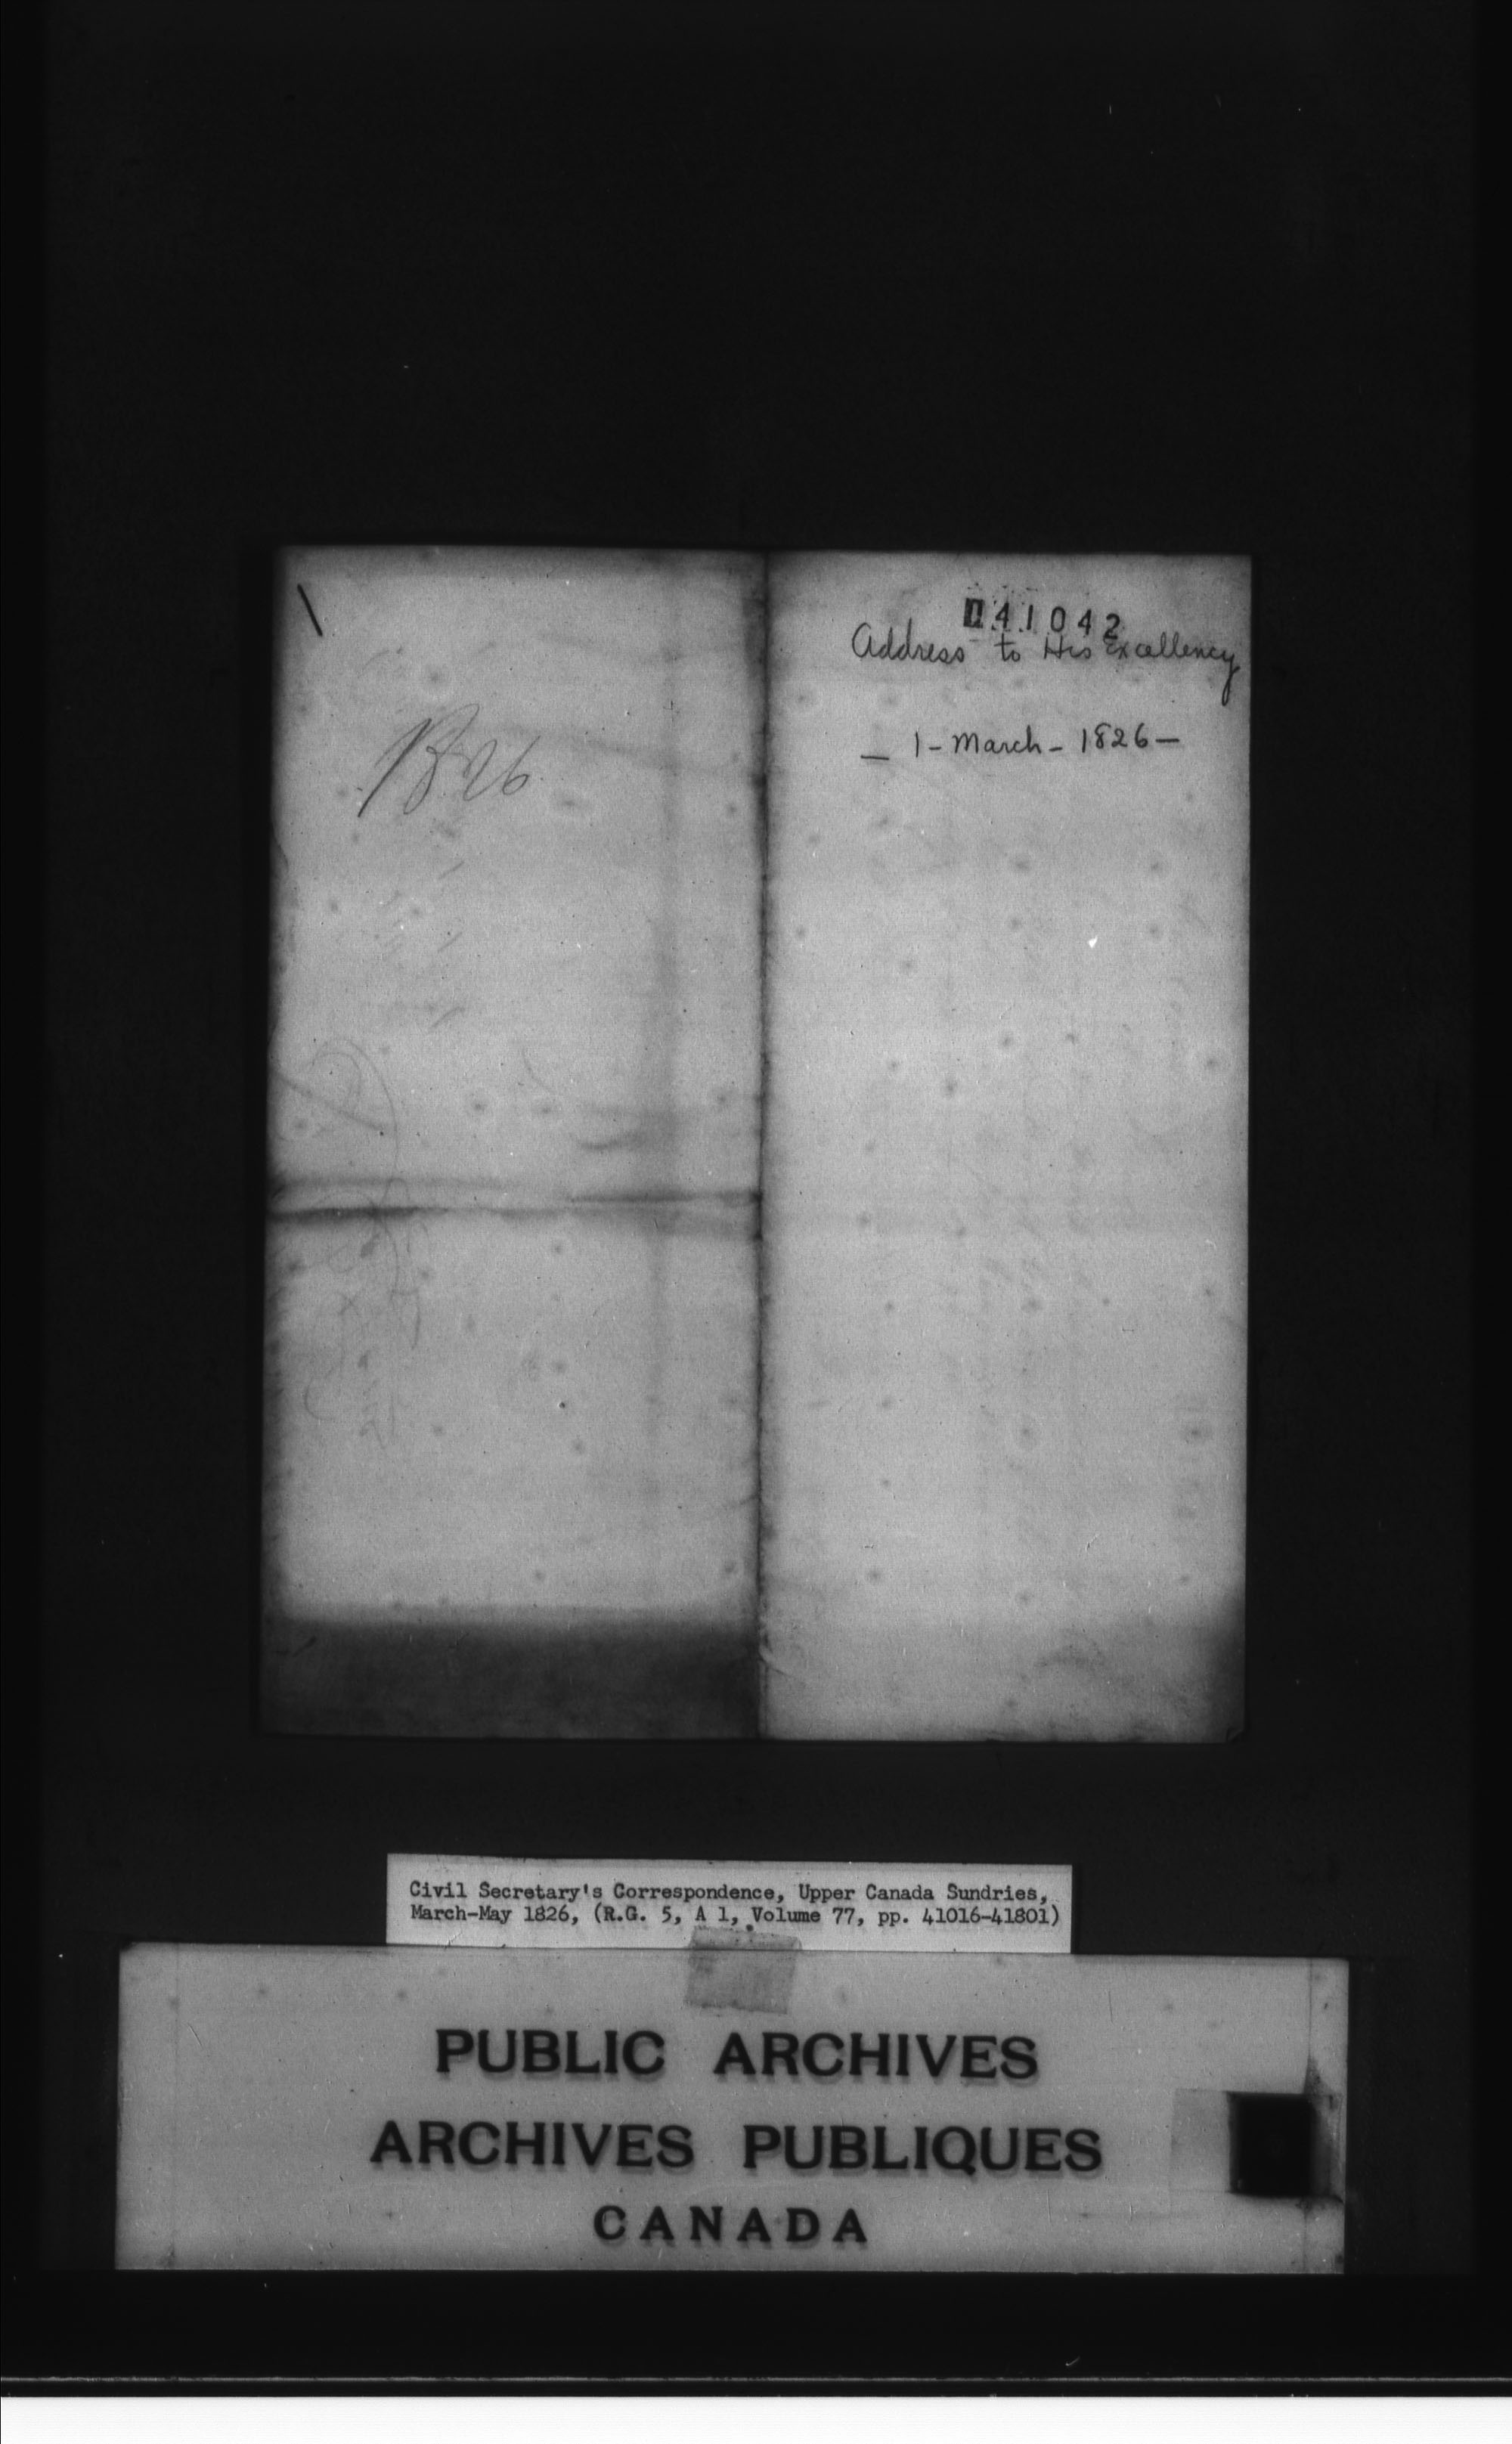 1826
041042
Address to His Excellency
— 1 - March - 1826 —
Civil Secretary's Correspondence, Upper Canada Sundries,
March-May 1826, (R.G. 5, A 1, Volume 77, pp. 41016-41801)
PUBLIC ARCHIVES
ARCHIVES PUBLIQUES
CANADA